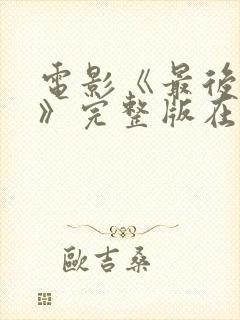 電影《最後
》完整版在
歐吉桑